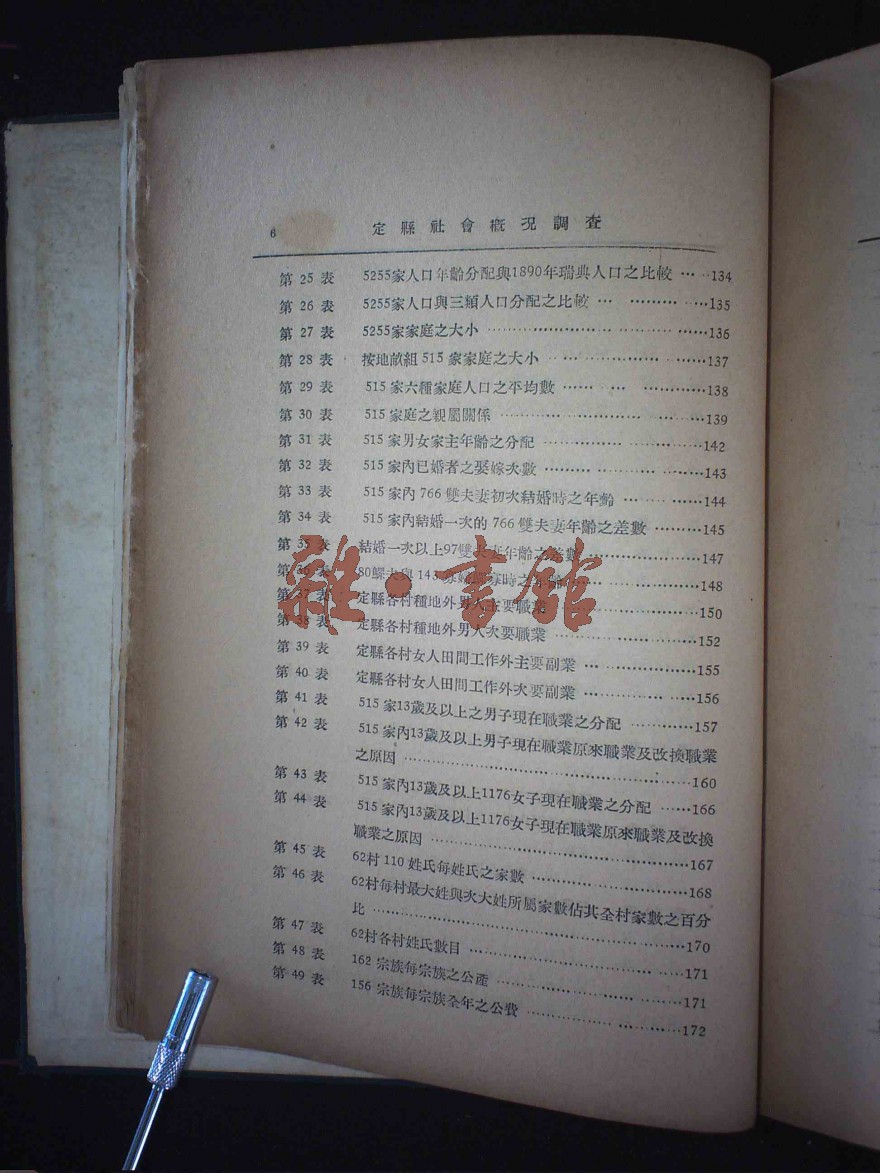 6 定縣社會概況調查
第 25 表 5255家人口年齡分配與1890年瑞典人口之比較 … …134
第 26 表 5255家人口與三類人口分配之比較 … ……… …135
第 27 表 5255家家庭之大小 ………………………… ……136
第 28 表 按地畝組 515 家家庭之大小 ……………………137
第 29 表 515 家六種家庭人口之平均數 …… … …………138
第 30 表 515 家庭之親屬關係 …………………… … ……139
第 31 表 515 家男女家主年齡之分配 …………… ………142
第 32 表 515 家內已婚者之娶嫁次數 ……… … …… ……143
第 33 表 515 家內 766 雙夫妻初次結婚時之年齡 … ………144
第 34 表 515 家內結婚一次的 766 雙夫妻年齡之差數 ………145
第 35 表 結婚一次以上97雙夫妻年齡之差數 ……………147
第 36 表 80鰥夫與 143 寡婦 寡時之年齡 ……………148
第 37 表 定縣各村種地外男人主要職業 ……………150
第 38 表 定縣各村種地外男人次要職業 ……………152
第 39 表 定縣各村女人田間工作外主要副業 … ……………155
第 40 表 定縣各村女人田間工作外次要副業 ……… … ……156
第 41 表 515 家13歲及以上之男子現在職業之分配 …………157
第 42 表 515 家內13歲及以上男子現在職業原來職業及改換職業
之原因 …………………………………………160
第 43 表 515 家內13歲及以上1176女子現在職業之分配 ……166
第 44 表 515 家內13歲及以上1176女子現在職業原來職業及改換
職業之原因 ……………………………………167
第 45 表 62村 110 姓氏每姓氏之家數 …………………168
第 46 表 62村每村最大姓與次大姓所屬家數佔其全村家數之百分
比 ………………………………………………170
第 47 表 62村各村姓氏數目 ……………………… …171
第 48 表 162 宗族每宗族之公產 …………………… …171
第 49 表 156 宗族每宗族全年之公費 …………… ………172
雜·書館